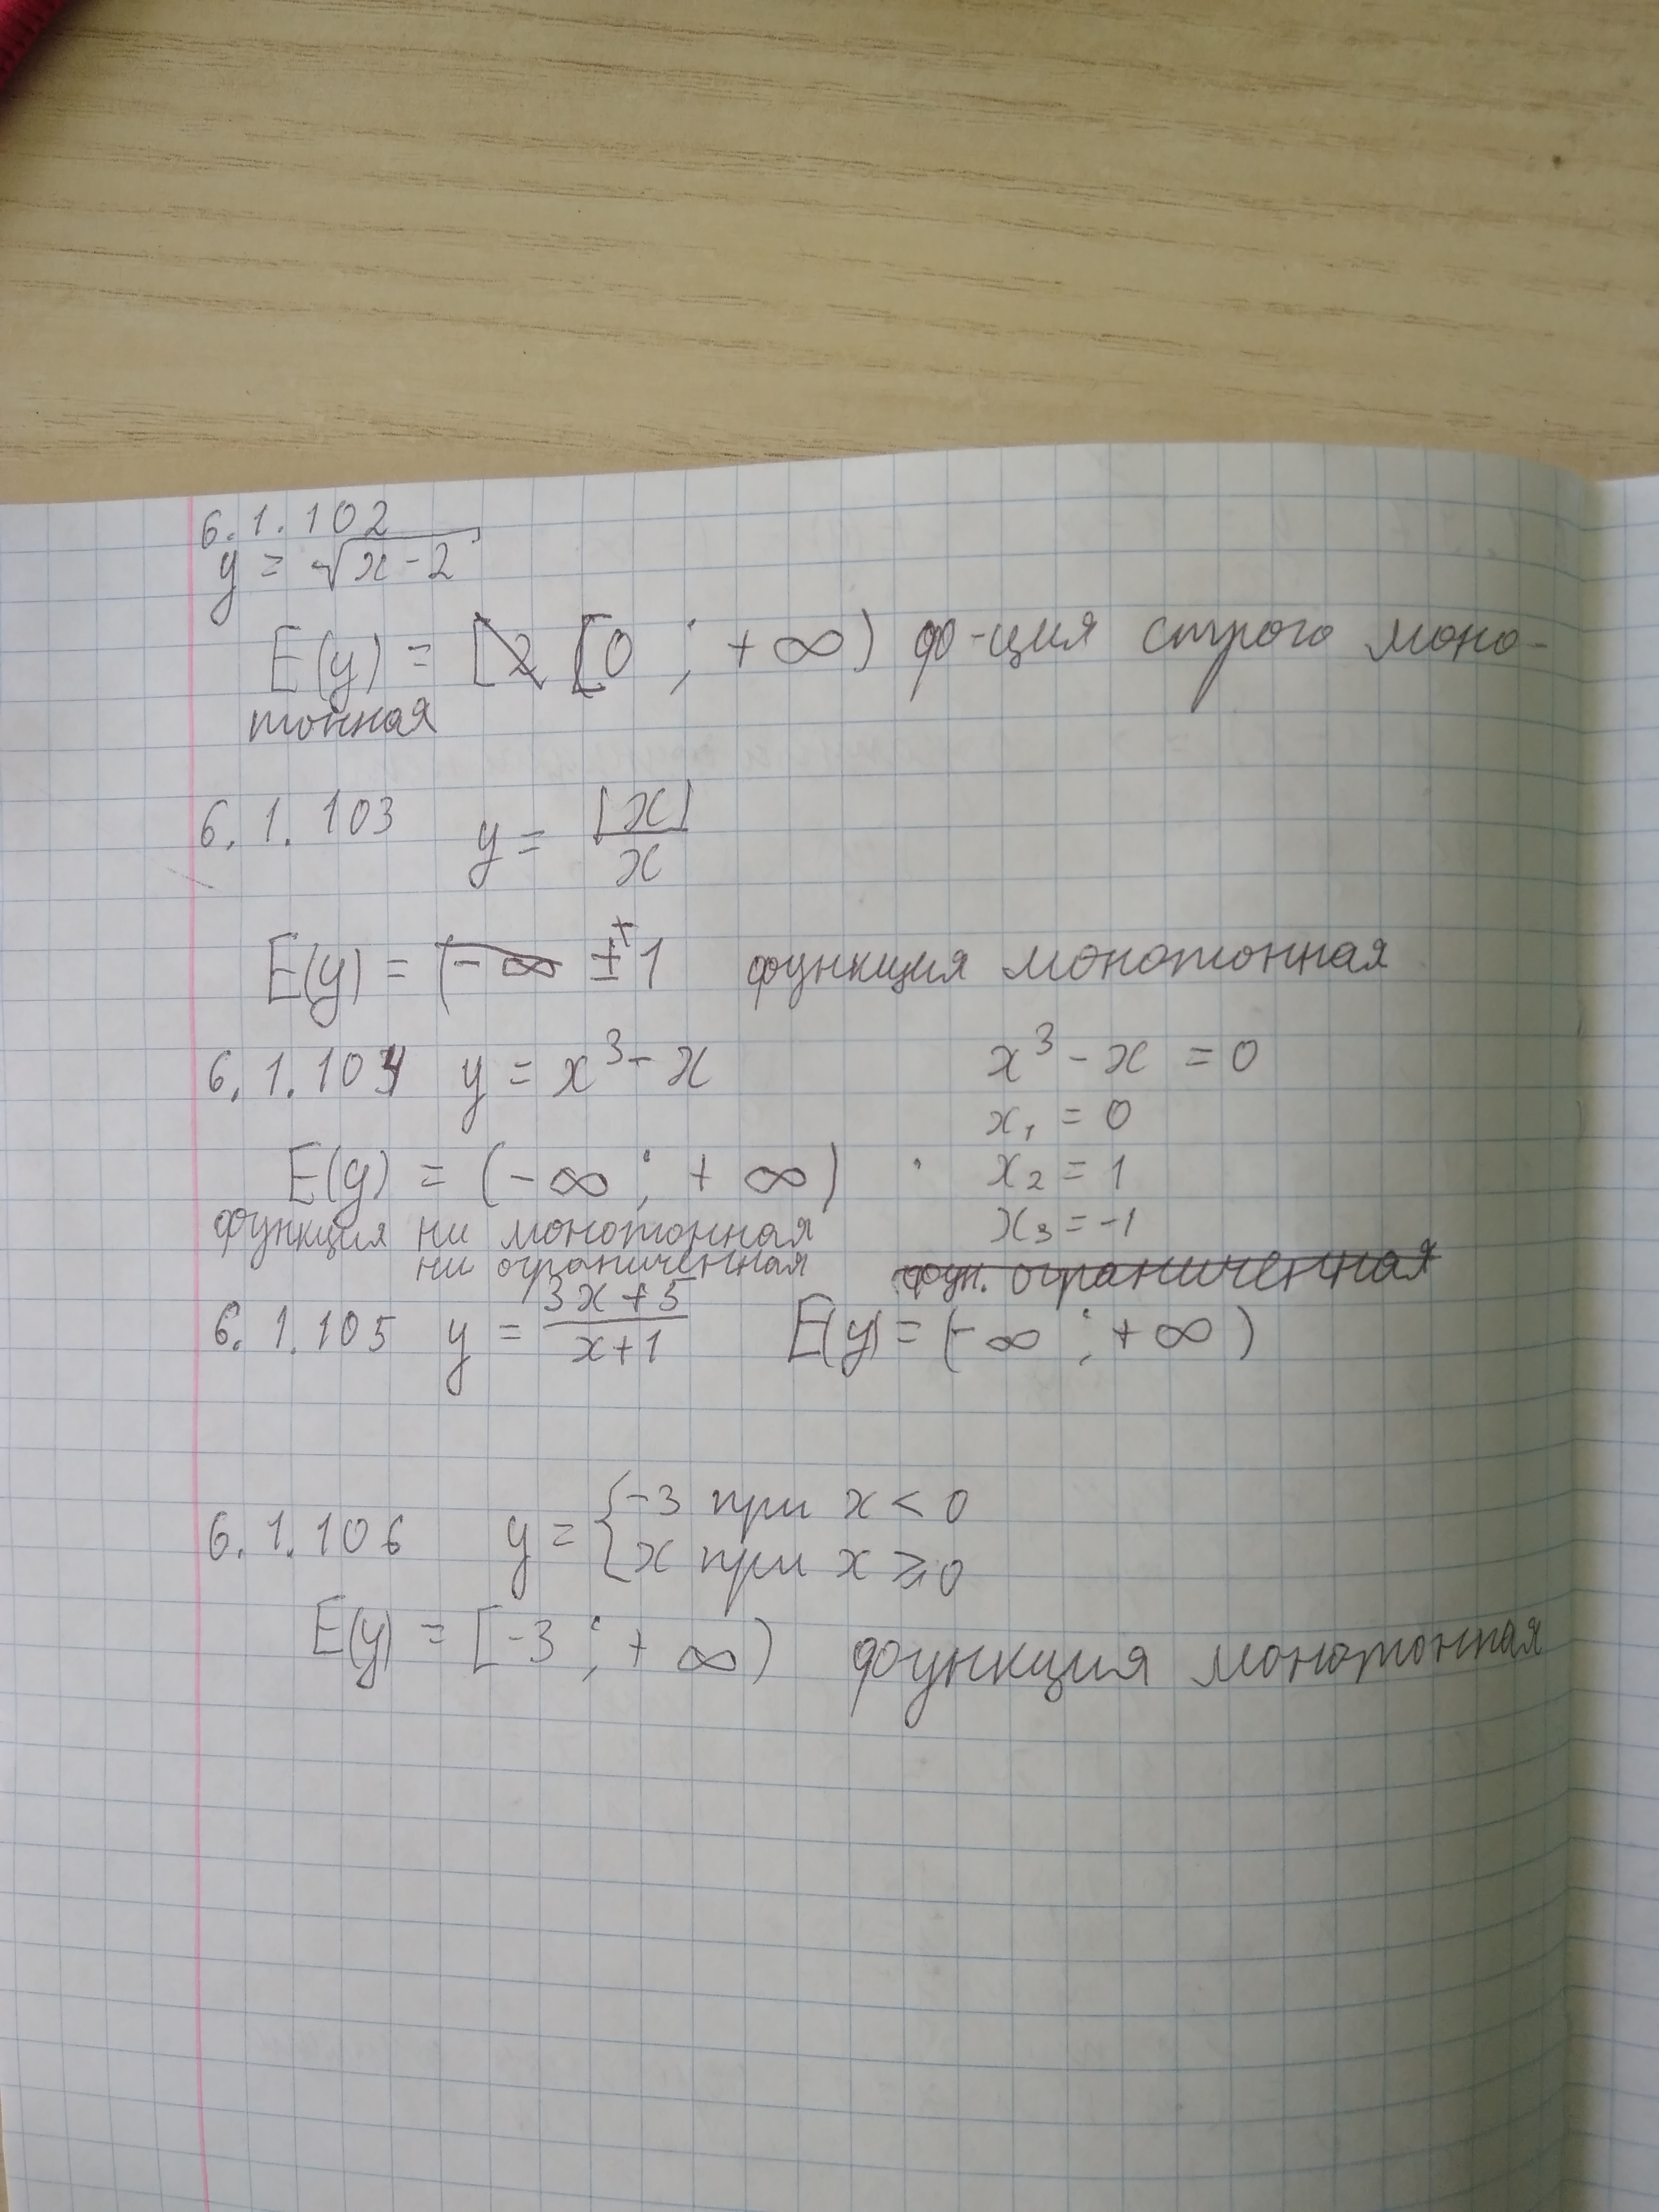 6.1.102
y = √(x-2)
E(y) = [2 [0 ; +∞) ф-ция строго моно-
тонная
6.1.103 y = |x|/x
E(y) = (-∞ ± 1 функция монотонная
6.1.104 y = x³ - x x³ - x = 0
x₁ = 0
E(y) = (-∞ ; +∞) x₂ = 1
функция ни монотонная x₃ = -1
ни ограниченная фун. ограниченная
6.1.105 y = (3x+5)/(x+1) E(y) = (-∞ ; +∞)
6.1.106 y = { -3 при x < 0
x при x ⩾ 0
E(y) = [-3 ; +∞) функция монотонная